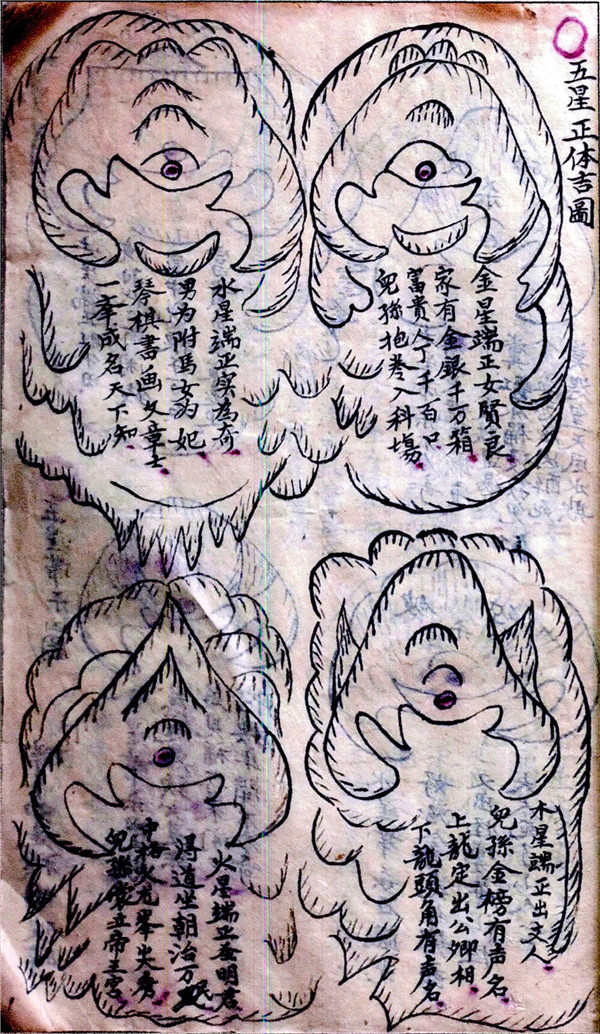 五星正体吉圖
金星端正女賢良
家有金銀千万箱
富貴人丁千百口
兒孫抱卷入科場
水星端正实為奇
男为附馬女为妃
琴棋書画文章士
一舉成名天下知
木星端正出文人
兒孫金榜有声名
上龍定出公卿相
下龍頭角有声名
火星端正 明君
得道坐朝治万民
中格 元舉 秀
兒孫 帝王宮